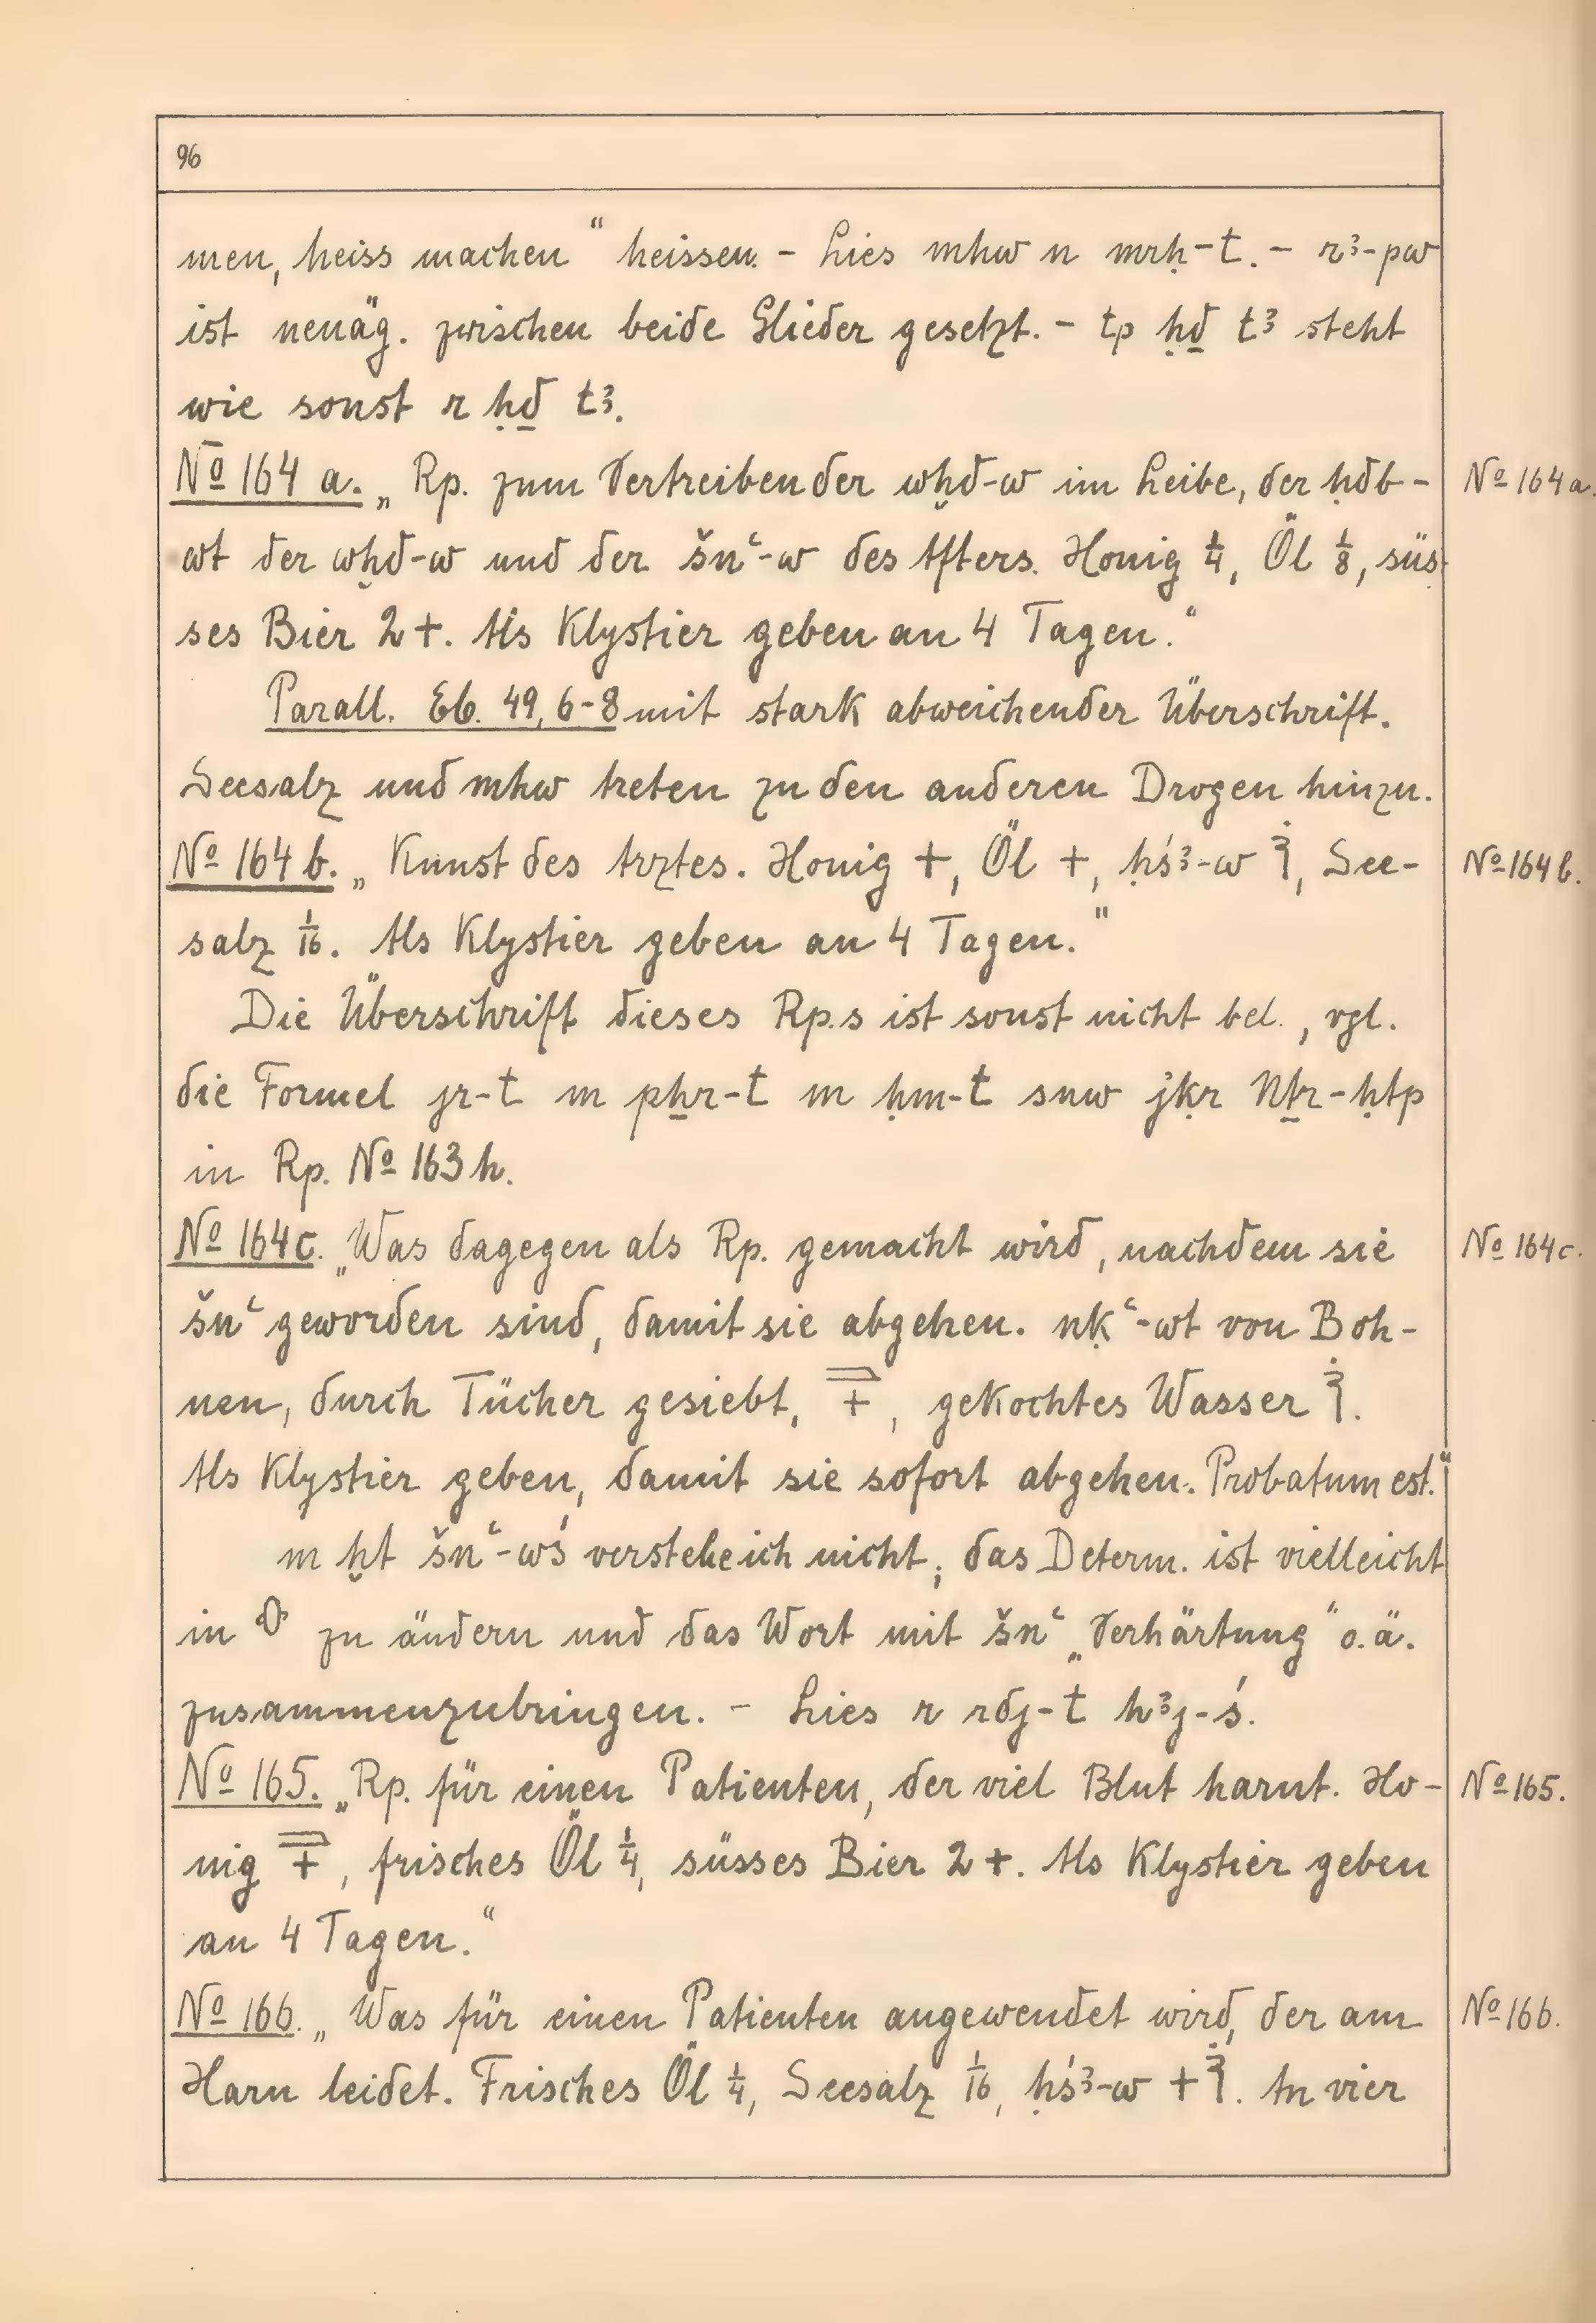 96
men, heiss machen“ heissen. – Lies mhw n mrḥ-t. – rꜣ-pw
ist neuäg. zwischen beide Glieder gesetzt. – tp ḥḏ tꜣ steht
wie sonst r ḥḏ tꜣ.
No 164 a. „Rp. zum Vertreiben der wḫd-w im Leibe, der ḥdb- No 164 a.
wt der wḫd-w und der šnꜥ-w des Afters. Honig 1/4, Öl 1/8, süs-
ses Bier 2 +. Als Klystier geben an 4 Tagen.“
Parall. Eb. 49, 6-8 mit stark abweichender Überschrift.
Seesalz und mhw treten zu den anderen Drogen hinzu.
No 164 b. „Kunst des Arztes. Honig +, Öl +, ḥśꜣ-w, See- No 164 b.
salz 1/16. Als Klystier geben an 4 Tagen.“
Die Überschrift dieses Rp.s ist sonst nicht bel., vgl.
die Formel jr-t m pẖr-t m ḥm-t snw jḳr Nṯr-ḥtp
in Rp. No 163 h.
No 164 c. „Was dagegen als Rp. gemacht wird, nachdem sie No 164 c.
šnꜥ geworden sind, damit sie abgehen. nḳꜥ-wt von Boh-
nen, durch Tücher gesiebt, +, gekochtes Wasser.
Als Klystier geben, damit sie sofort abgehen. Probatum est.“
m ḫt šnꜥ-wś verstehe ich nicht; das Determ. ist vielleicht
in zu ändern und das Wort mit šnꜥ „Verhärtung“ o. ä.
zusammenzubringen. – Lies r rdj-t hꜣj-ś.
No 165. „Rp. für einen Patienten, der viel Blut harnt. Ho- No 165.
nig +, frisches Öl 1/4, süsses Bier 2 +. Als Klystier geben
an 4 Tagen.“
No 166. „Was für einen Patienten angewendet wird, der am No 166.
Harn leidet. Frisches Öl 1/4, Seesalz 1/16, ḥśꜣ-w +. An vier